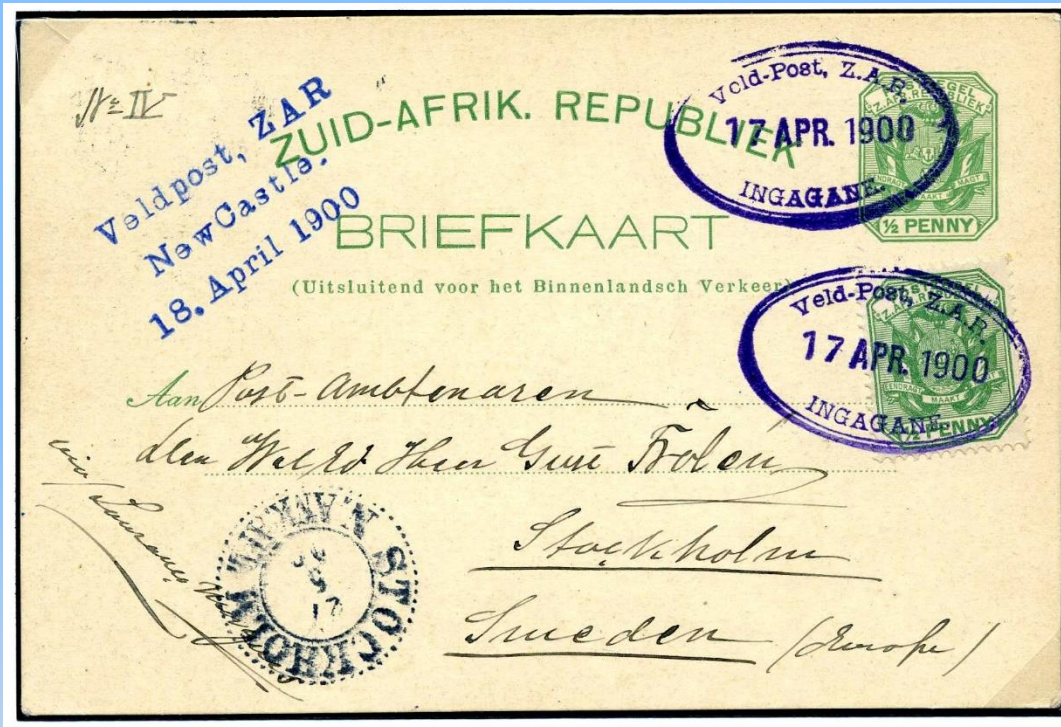 No IV
Veldpost, ZAR
NewCastle.
18. April 1900
ZUID-AFRIK. REPUBLIEK
BRIEFKAART
(Uitsluitend voor het Binnenlandsch Verkeer)
Veld-Post, Z.A.R.
17 APR. 1900
INGAGANE.
POSTZEGEL
Z.AFR.REPUBLIEK
EENDRAGT MAAKT MAGT
½ PENNY
Veld-Post, Z.A.R.
17 APR. 1900
INGAGANE.
POSTZEGEL
Z.AFR.REPUBLIEK
EENDRAGT MAAKT MAGT
½ PENNY
Aan Post-Ambtenaren
den Wel Ed Heer Gust Frölén
Stockholm
Sweden (Europe)
via Laurenço
STOCKHOLM
17